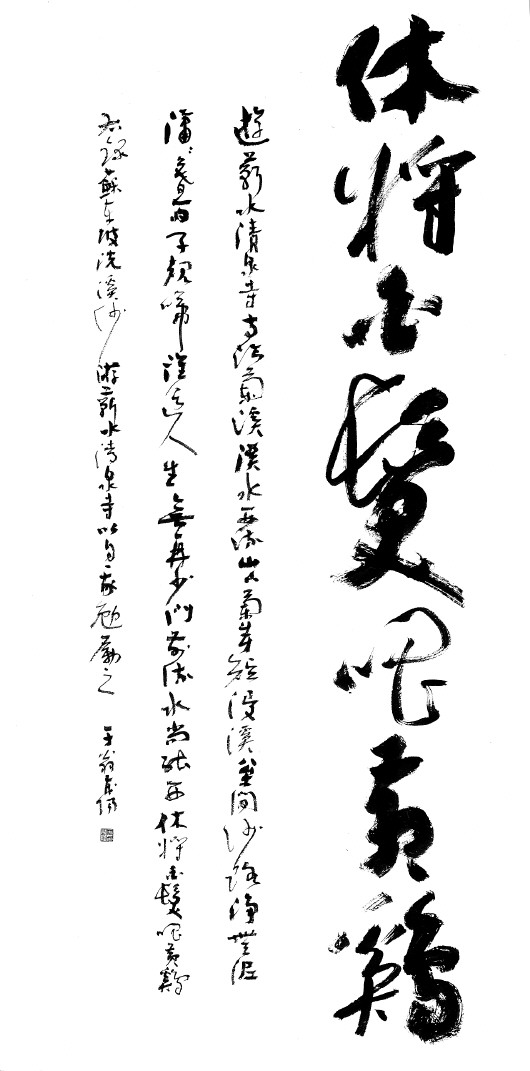 休將白髮唱黃鷄
遊蘄水清泉寺寺臨蘭溪溪水西流山下蘭芽短浸溪松間沙路淨無泥
瀟瀟暮雨子規啼誰道人生無再少門前流水尚能西休將白髮唱黃鷄
右錄蘇東坡浣溪沙 游蘄水清泉寺以自家勉勵之